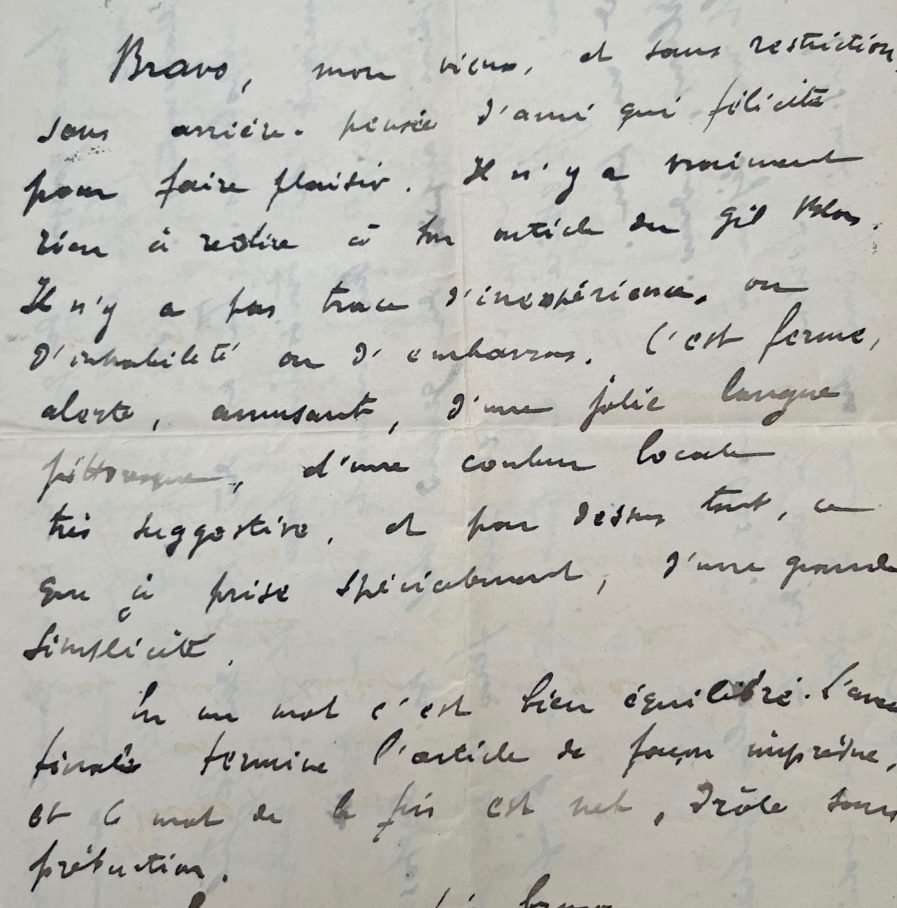 Bravo, mon vieux, et sans restriction,
sans arrière-pensée d'ami qui félicite
pour faire plaisir. Il n'y a vraiment
rien à redire à ton article du Gil Blas.
Il n'y a pas trace d'inexpérience, ou
d'inhabileté ou d'embarras. C'est ferme,
alerte, amusant, d'une jolie langue
pittoresque, d'une couleur locale
très suggestive, et par dessus tout, ce
que je prise spécialement, d'une grande
simplicité.
En un mot c'est bien équilibré. L'
finale termine l'article de façon imprévue,
et le mot de la fin est net, drôle sans
prétention.